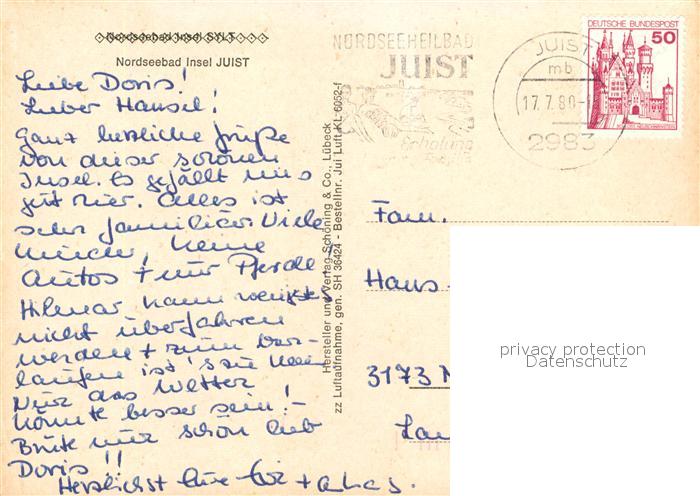 Nordseebad Insel SYLT
Nordseebad Insel JUIST
Liebe Doris!
Lieber Hansel!
Ganz herzliche Grüße
von dieser schönen
Insel. Es gefällt uns
gut hier. Alles ist
sehr familiär. Viele
Kinder, keine
Autos + nur Pferde!
Hilmar kann wenigstens
nicht überfahren
werden + zum
laufen ist
Nur das Wetter
könnte besser sein! –
nur schön lieb
Doris!!
Herzlichst Eure
Hersteller und Verlag Schöning & Co., Lübeck
zz Luftaufnahme, gen. SH 36424 - Bestellnr. Jui Luft KL 6052-f
NORDSEEHEILBAD
JUIST
Erholung
JUIST
mb
17.7.80-1
2983
DEUTSCHE BUNDESPOST
50
Fam.
Hans
3173
privacy protection
Datenschutz